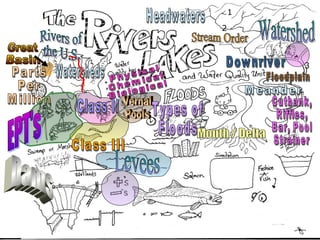 The
Rivers
Lakes
and Water Quality Unit
Headwaters
Stream Order
Watershed
1
2
Rivers of
the U.S.
Great
Basin
Parts
Per
Million
Watersheds
Water
Physical
Chemical
Biological
Downriver
Floodplain
Meander
Cutbank,
Riffles,
Bar, Pool
Strainer
FLOODS
Class V
Vernal
Pools
Types of
Floods
Mouth / Delta
EPT's
Class III
Swamp or Marsh
Wetlands
Levees
Dams
+'s
-'s
Salmon
Fish